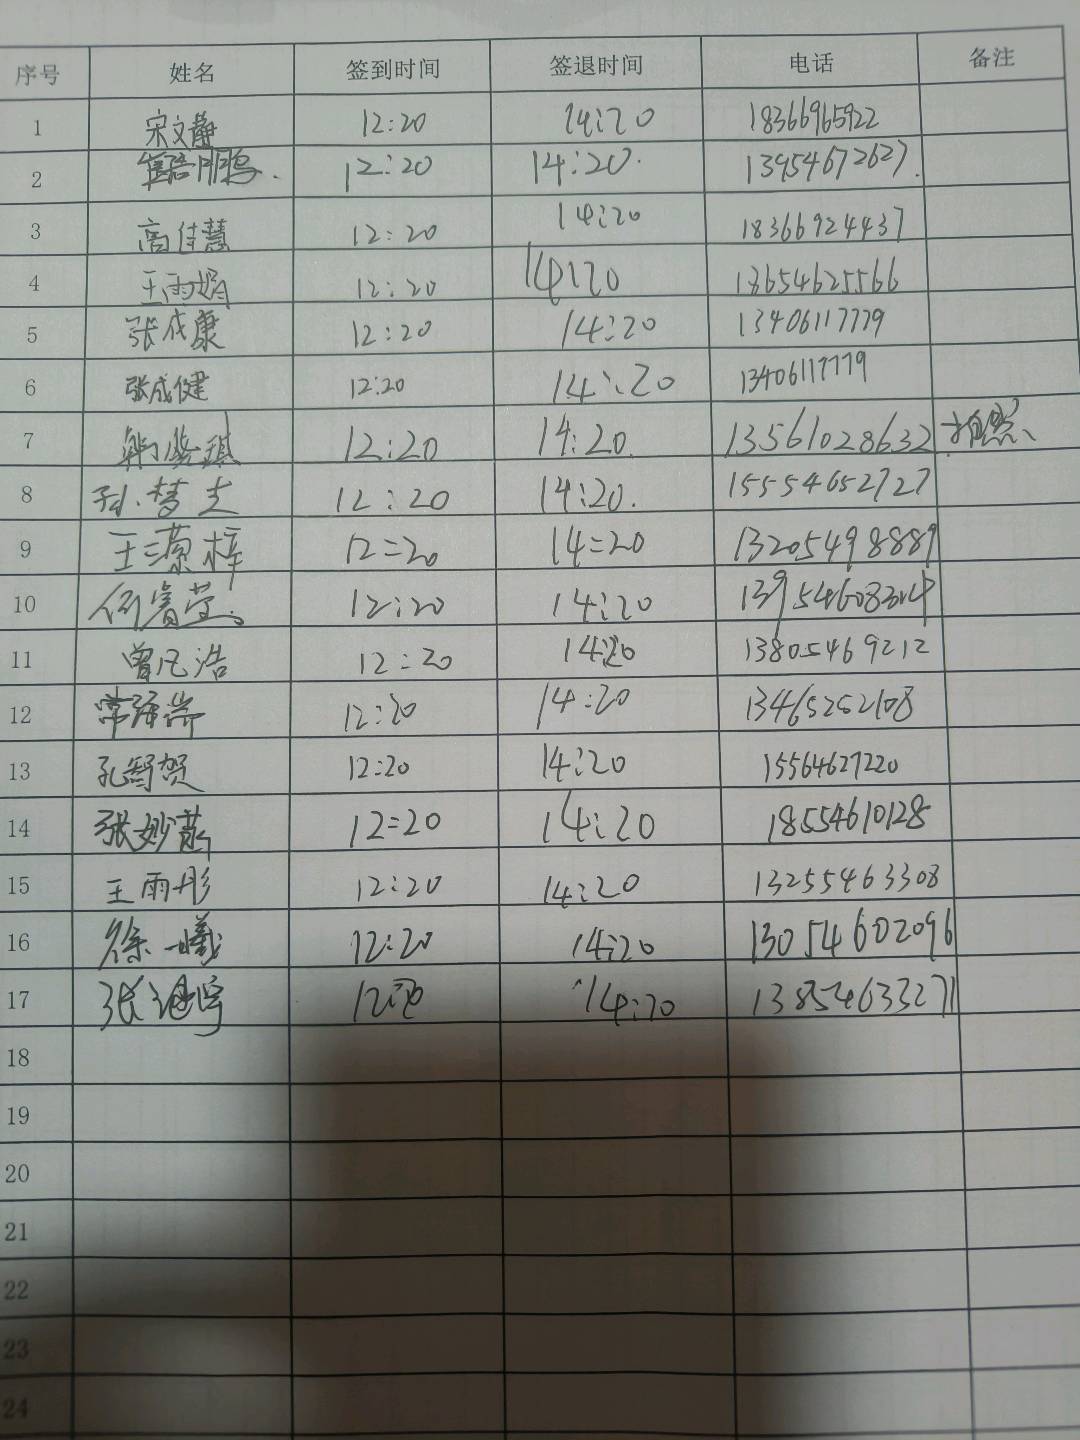 序号 姓名 签到时间 签退时间 电话 备注
1 宋文静 12:20 14:20 18366965922
2 12:20 14:20. 13954672627.
3 高佳慧 12:20 14:20 18366924437
4 王雨 12:20 14:20 13654625566
5 张成康 12:20 14:20 13406117779
6 张成健 12:20 14:20 13406117779
7 12:20 14:20. 13561028632
8 孙梦 12:20 14:20. 15554652727
9 王 梓 12:20 14:20 13205498889
10 何睿莹。 12:20 14:20 13954608304
11 曾凡浩 12:20 14:20 13805469212
12 常 12:20 14:20 13465252108
13 孔智贺 12:20 14:20 15564627220
14 张妙 12:20 14:20 18554610128
15 王雨彤 12:20 14:20 13255463308
16 徐一曦 12:20 14:20 13054602096
17 张 12:20 14:20 13854633271
18
19
20
21
22
23
24